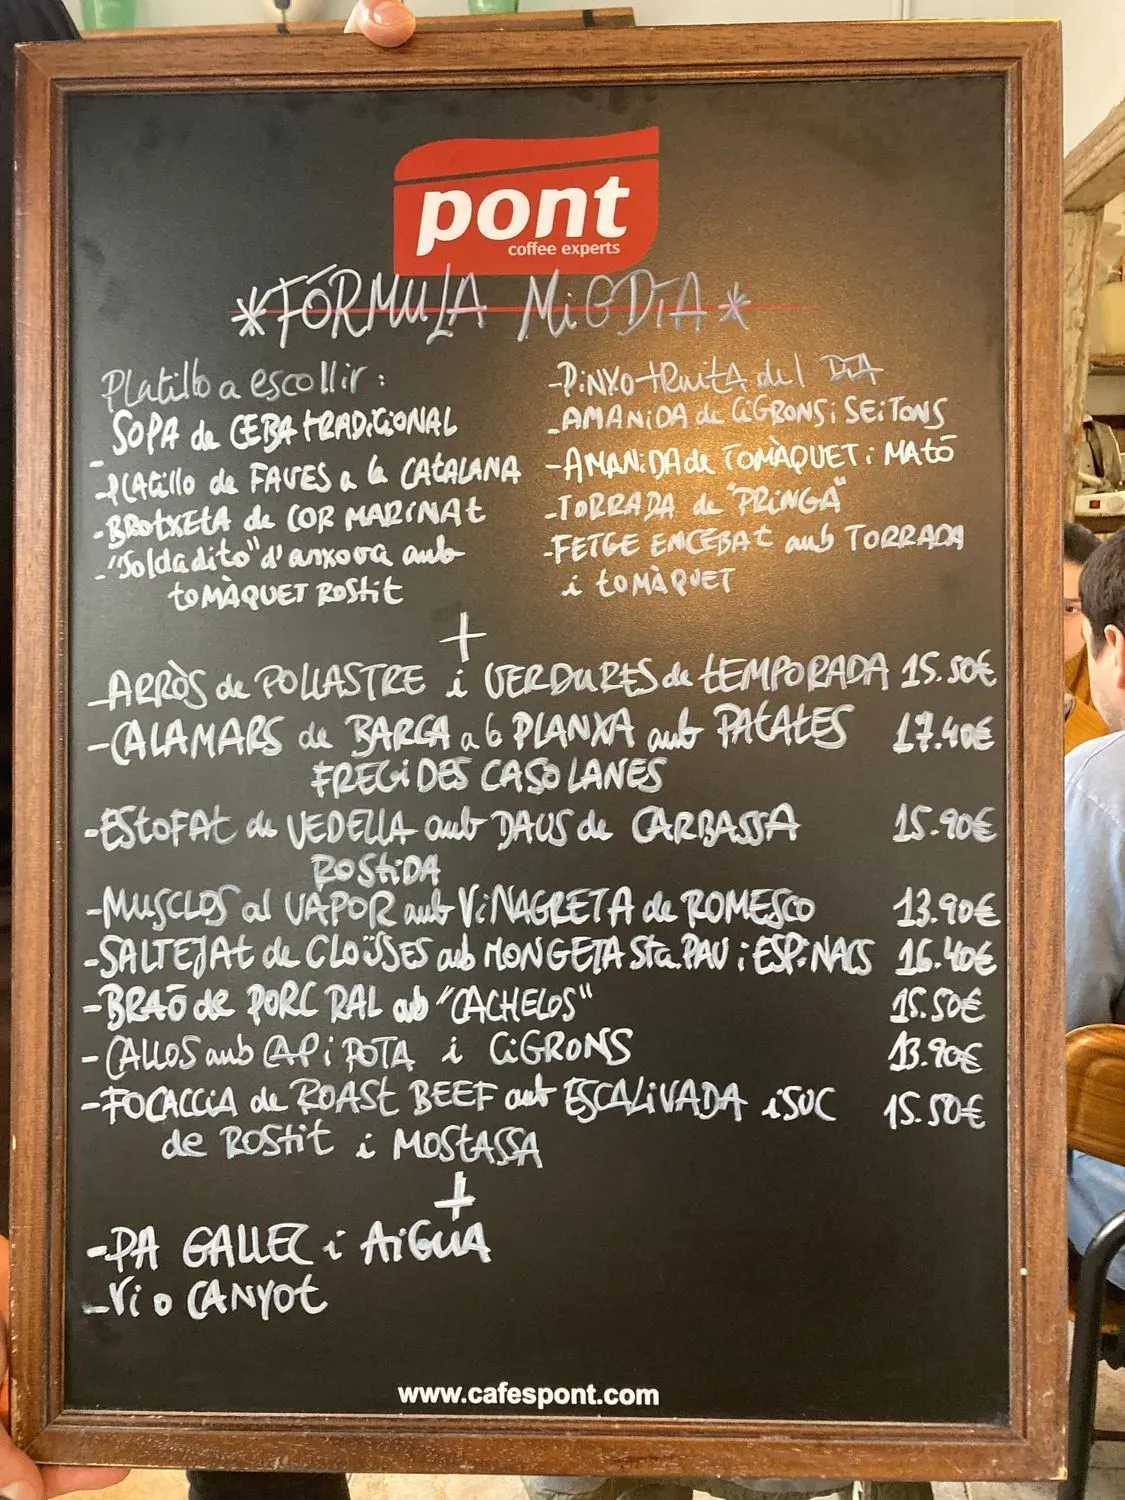 pont
coffee experts
*FÓRMULA MiGDIA*
Platillo a escollir:
- SOPA de CEBA tRADiCiONAL
- PLAtillo de FAVES a la CAtALANA
- BROtXETA de COR MARINAt
- "Soldadito" d'anxova amb
tOMÀQUET ROStit
- PiNXO tRuitA del DIA
- AMANiDA de CiGRONS i SEitONS
- AMANiDA de TOMÀQUET i MATÓ
- TORRADA de "PRiNGÁ"
- FETGE ENCEBAt amb TORRADA
i tOMÀQUET
+
- ARRÒS de POLLASTRE i VERDURES de tEMPORADA 15.50€
- CALAMARS de BARCA a la PLANXA amb PAtAtES 17.40€
FREGiDES CASOLANES
- EStOFAt de VEDELLA amb DAUS de CARBASSA 15.90€
ROStiDA
- MUSCLOS al VAPOR amb ViNAGRETA de ROMESCO 13.90€
- SALTEJAt de CLOÏSSES amb MONGETA Sta. PAU i ESPiNACS 16.40€
- BRAÓ de PORC RAL amb "CACHELOS" 15.50€
- CALLOS amb CAP i POTA i CiGRONS 13.90€
- FOCACCiA de ROASt BEEF amb ESCALiVADA i SUC 15.50€
de ROStit i MOStASSA
+
- PA GALLEC i AiGUA
- Vi o CANYOt
www.cafespont.com